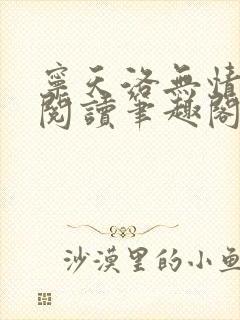 寧天洛無情
閱讀筆趣閣
沙漠里的小魚